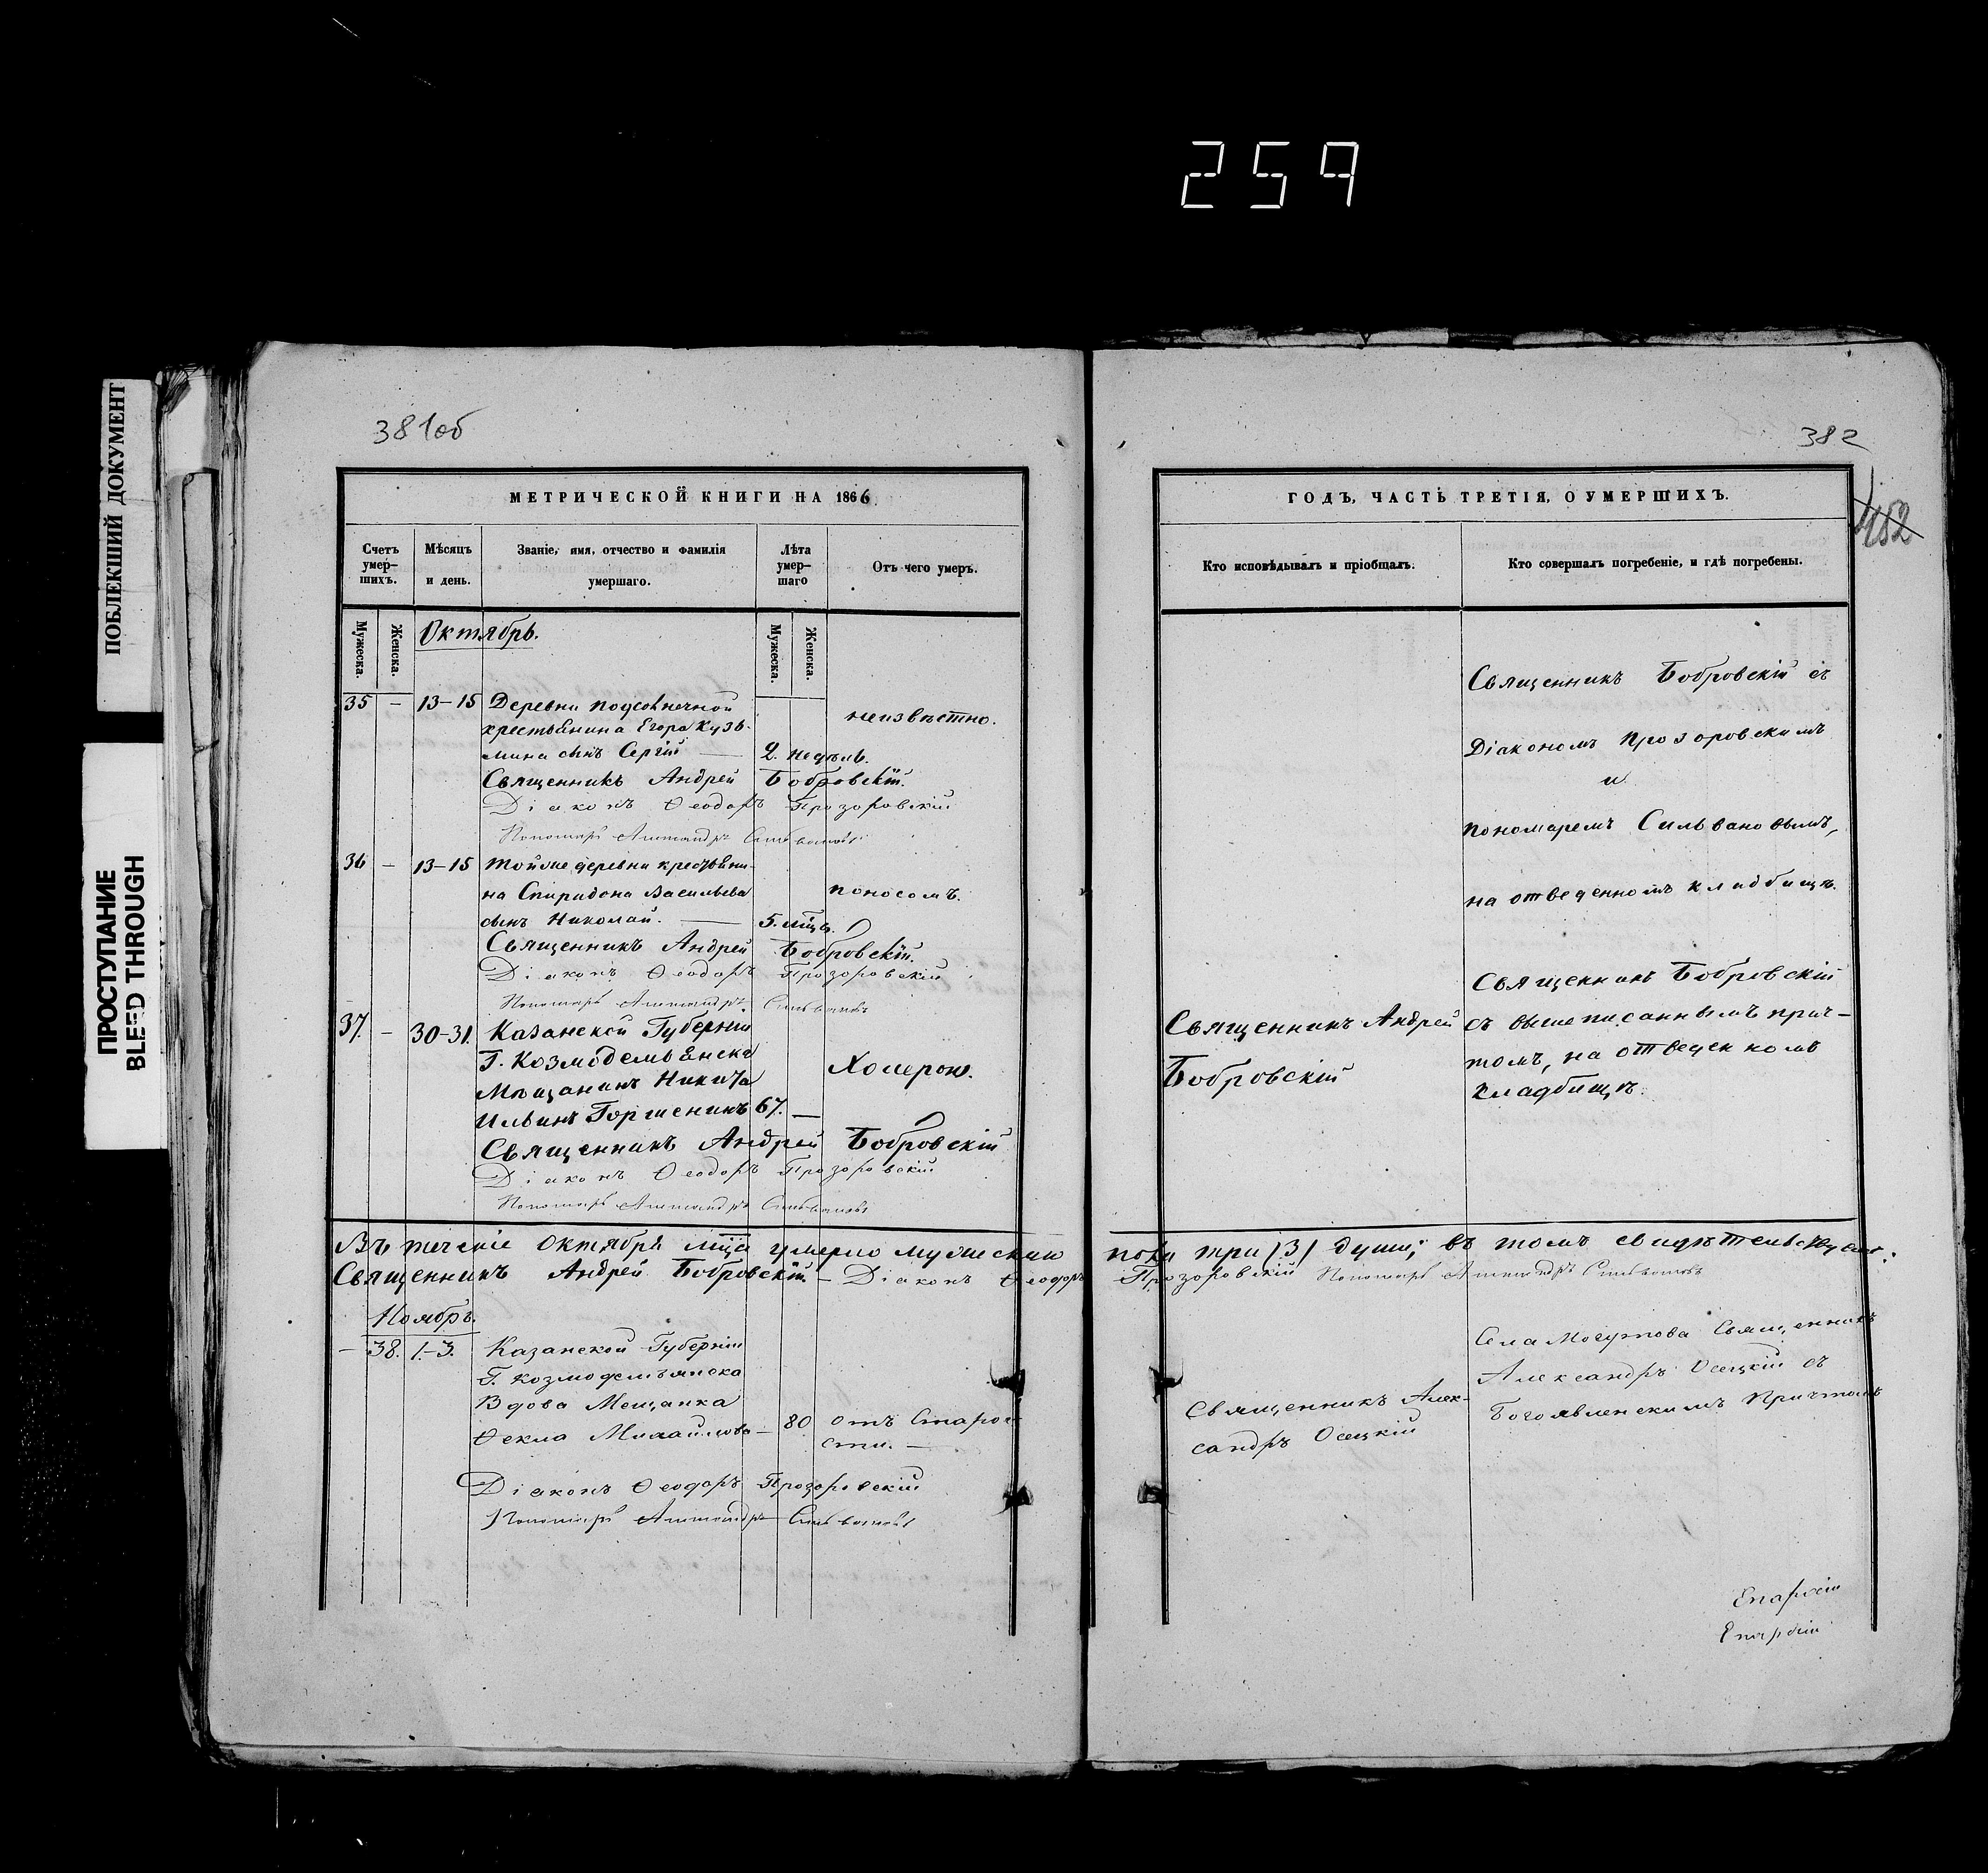 259
ПОБЛЕКШИЙ ДОКУМЕНТ
ПРОСТУПАНИЕ
BLEED THROUGH
381об
МЕТРИЧЕСКОЙ КНИГИ НА 1866
Счетъ умер-шихъ.
Мѣсяцъ и день.
Званіе, имя, отчество и фамилія умершаго.
Лѣта умер-шаго
Отъ чего умеръ.
Мужеска.
Женска.
Октябрь.
Мужеска.
Женска.
35 – 13–15 Деревни Подсолнечной
крестьянина Егора Кузь-
мина сынъ Сергій — 2. недѣль. неизвѣстно.
Священникъ Андрей Бобровскій.
Діаконъ Ѳеодоръ Прозоровскій
Пономарь Сильвановъ
36 – 13–15 Тойже деревни крестьяни-
на Спиридона Васильева поносомъ.
сынъ Николай. — 5. мца.
Священникъ Андрей Бобровскій.
Діаконъ Ѳеодоръ Прозоровскій
Пономарь Сильвановъ
37. – 30–31. Казанской Губерніи
Г. Козмодемьянска
Мѣщанинъ Никита Холерою.
Ильинъ Горшенинъ 67. —
Священникъ Андрей Бобровскій
Діаконъ Ѳеодоръ Прозоровскій
Пономарь Сильвановъ
Въ теченіе Октября мца умерло мужескаго
Священникъ Андрей Бобровскій. – Діаконъ Ѳеодоръ
Ноябрь.
– 38. 1–3. Казанской Губерніи
Г. Козмодемьянска
Вдова Мещанка
Ѳекла Михайлова – 80 отъ Старос-
сти. –
Діаконъ Ѳеодоръ Прозоровскій
Пономарь Сильвановъ
382
152
ГОДЪ, ЧАСТЬ ТРЕТІЯ, О УМЕРШИХЪ.
Кто исповѣдывалъ и пріобщалъ.
Кто совершалъ погребеніе, и гдѣ погребены.
Священникъ Бобровскій съ
Діакономъ Прозоровскимъ
и
пономаремъ Сильвановымъ,
на отведенномъ кладбищѣ.
Священникъ Бобровскій
Священникъ Андрей съ вышеписаннымъ прич-
томъ, на отведенномъ
Бобровскій кладбищѣ.
пола три /3/ души; въ томъ свидѣтельствуемъ:
Прозоровскій Пономарь Сильвановъ
Села Могутова Священникъ
Александръ Осецкій съ
Священникъ Алек- Богоявленскимъ Причтомъ
сандръ Осецкій
Епархіи
Епархіи